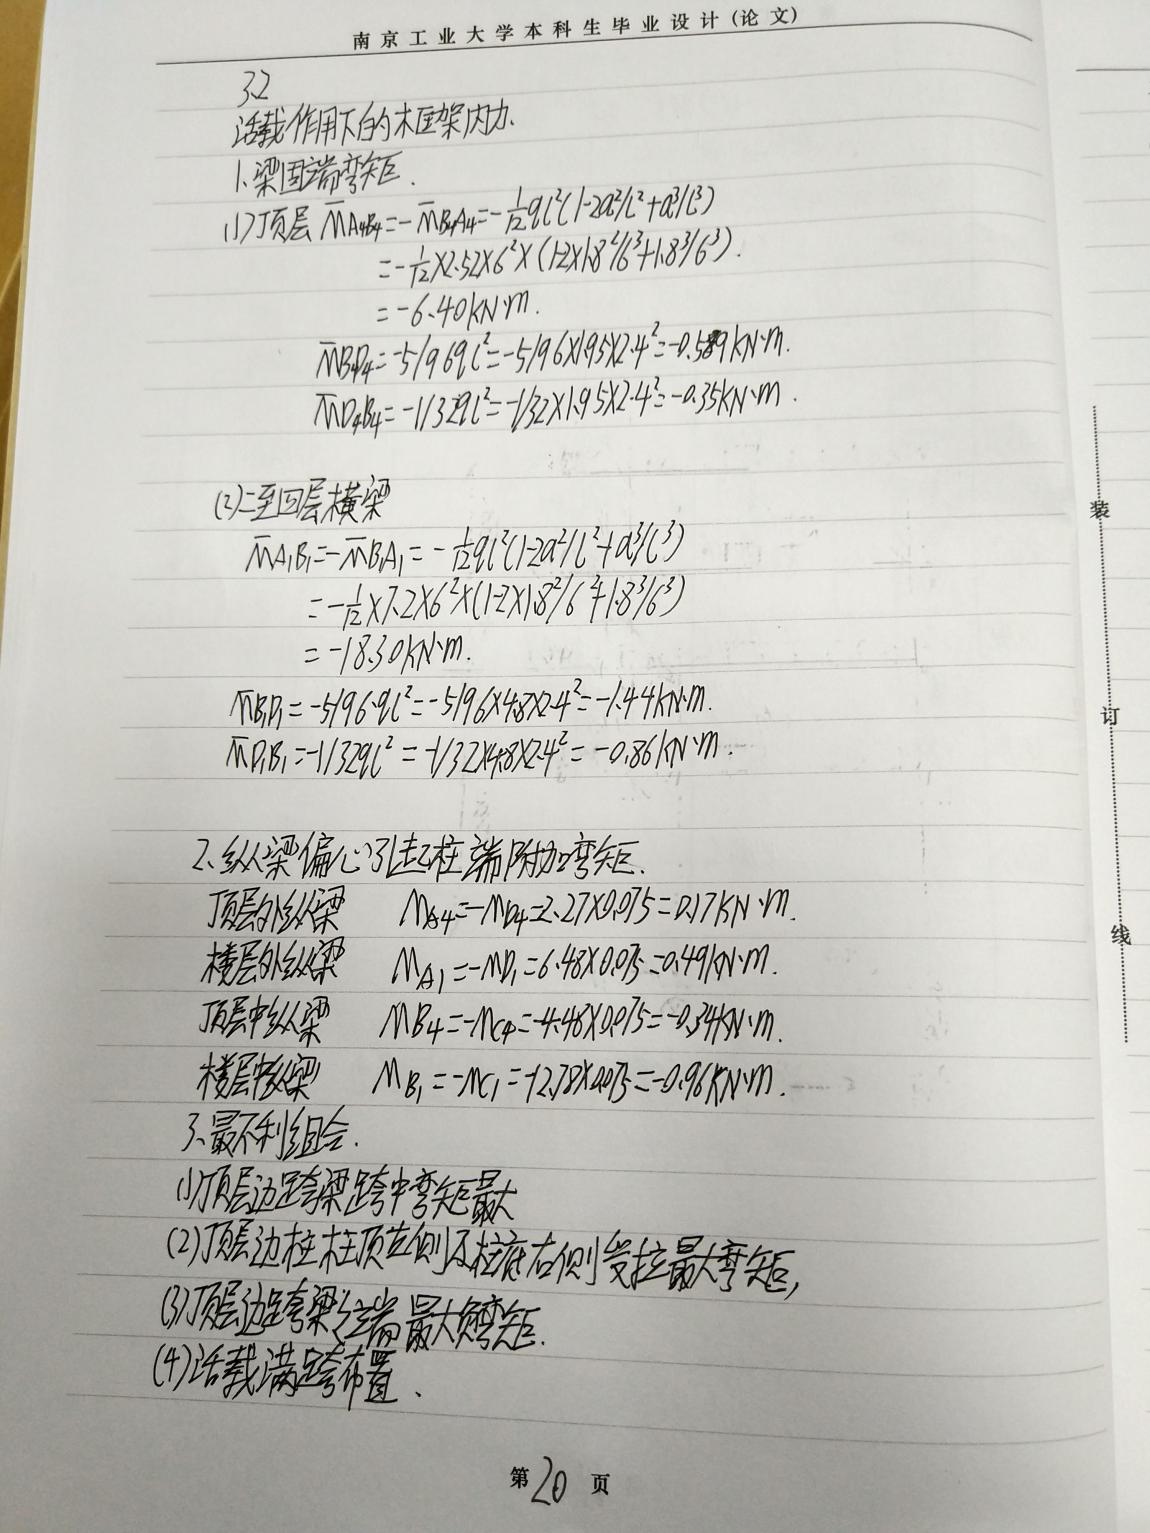 南京工业大学本科生毕业设计(论文)
3.2
活载作用下的木框架内力.
1.梁固端弯矩.
(1)顶层 M̅A₄B₄=-M̅B₄A₄=-1/12ql²(1-2a²/l²+a³/l³)
=-1/12×2.52×6²×(1-2×1.8²/6³+1.8³/6³).
=-6.40kN·m.
M̅B₄D₄=-5/96ql²=-5/96×1.95×2.4²=-0.589kN·m.
M̅D₄B₄=-1/32ql²=-1/32×1.95×2.4²=-0.35kN·m.
(2)二至四层横梁
M̅A₁B₁=-M̅B₁A₁=-1/12ql²(1-2a²/l²+a³/l³)
=-1/12×7.2×6²×(1-2×1.8²/6²+1.8³/6³)
=-18.30kN·m.
M̅B₁D₁=-5/96·ql²=-5/96×4.8×2.4²=-1.44kN·m.
M̅D₁B₁=-1/32ql²=-1/32×4.8×2.4²=-0.86kN·m.
2.纵梁偏心引起柱端附加弯矩.
顶层外纵梁 MA₄=-MD₄=2.27×0.075=0.17kN·m.
楼层外纵梁 MA₁=-MD₁=6.48×0.075=0.49kN·m.
顶层中纵梁 MB₄=-MC₄=-4.48×0.075=-0.34kN·m.
楼层中纵梁 MB₁=-MC₁=-12.78×0.075=-0.96kN·m.
3.最不利组合.
(1)顶层边跨梁跨中弯矩最大
(2)顶层边柱柱顶左侧及柱底右侧受拉最大弯矩,
(3)顶层边跨梁左端最大负弯矩.
(4)活载满跨布置.
第20页
装
订
线